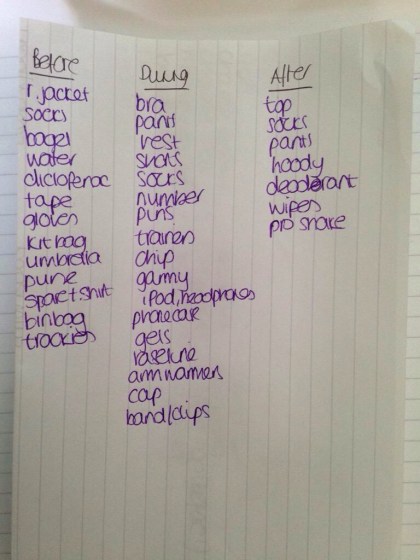 Before
r.jacket
socks
bagel
water
diclofenac
tape
gloves
kitbag
umbrella
purse
spare t shirt
binbag
trackies
During
bra
pants
vest
shorts
socks
number
pins
trainers
chip
garmy
ipod, headphones
phonecase
gels
vaseline
armwarmers
cap
band/clips
After
top
socks
pants
hoody
deodorant
wipes
pro shake